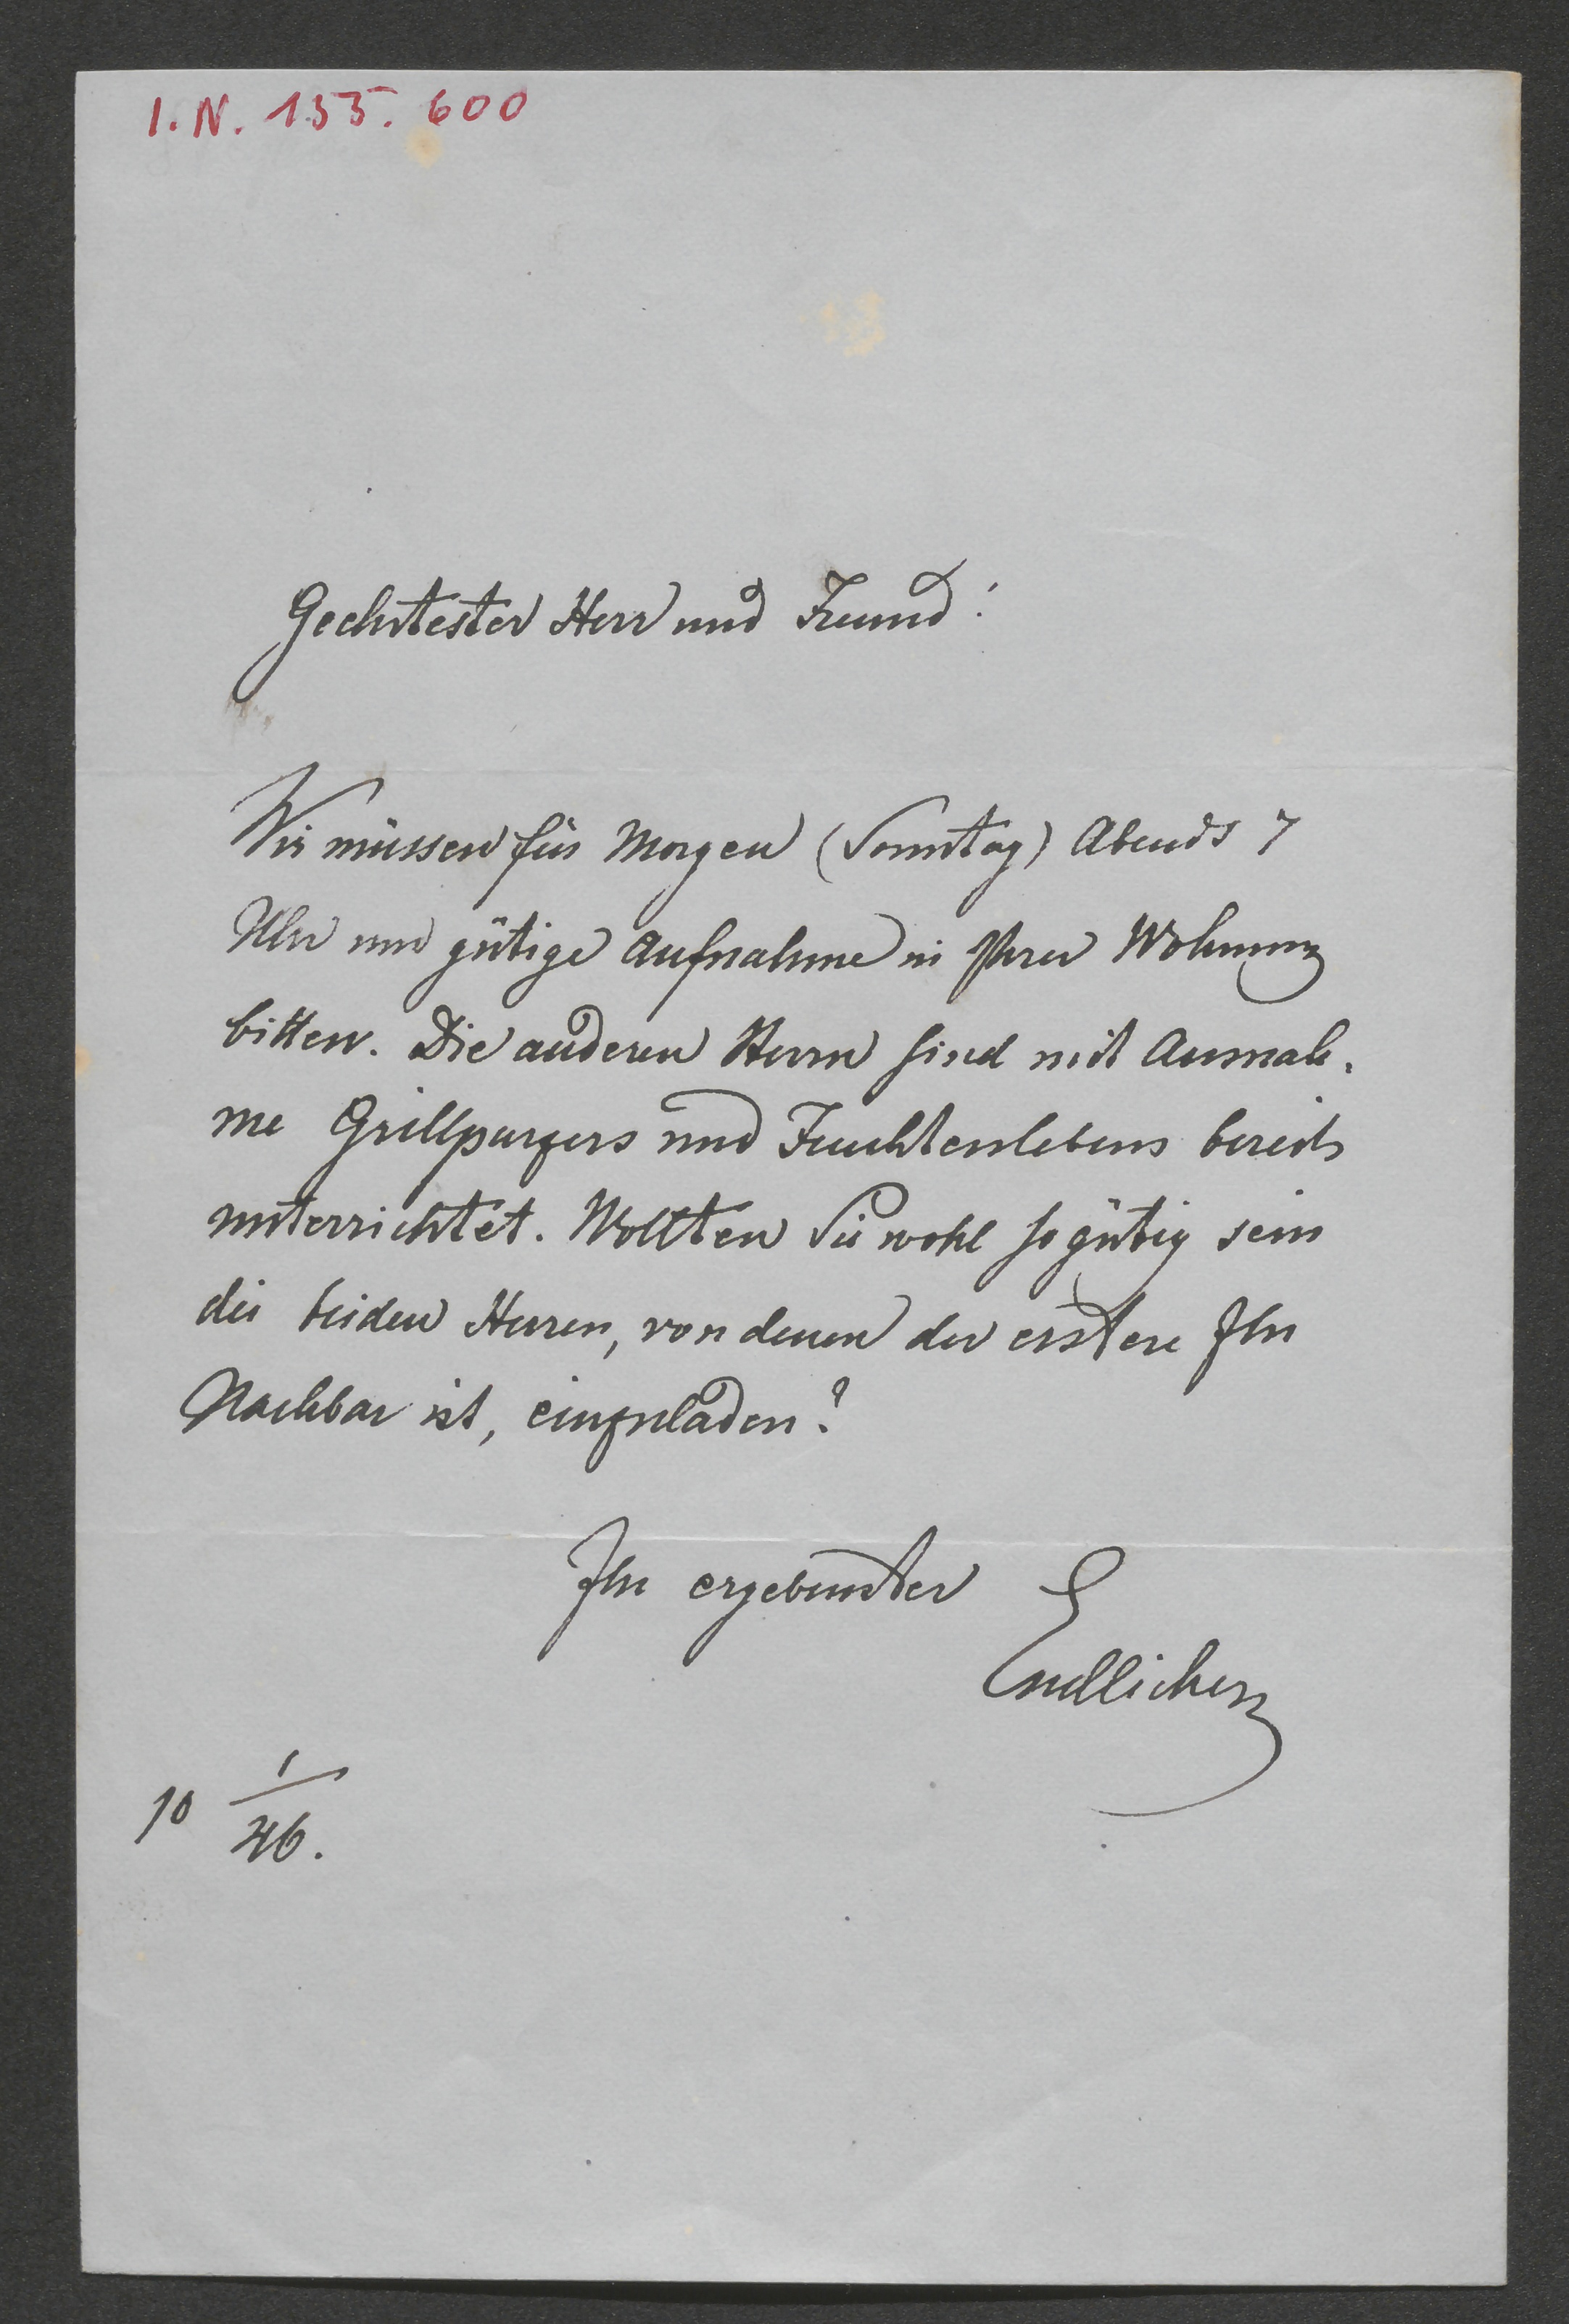 I. N. 155. 600
Geehrtester Herr und Freund!
Wir müssen für Morgen (Sonntag) Abends 7
Uhr um gütige Aufnahme in Ihrer Wohnung
bitten. Die anderen Herrn sind mit Ausnah-
me Grillparzers und Feuchterslebens bereits
unterrichtet. Wollten Sie wohl so gütig sein
die beiden Herren, von denen der erstere Ihr
Nachbar ist, einzuladen?
Ihr ergebenster
Endlicher
10 1/46.